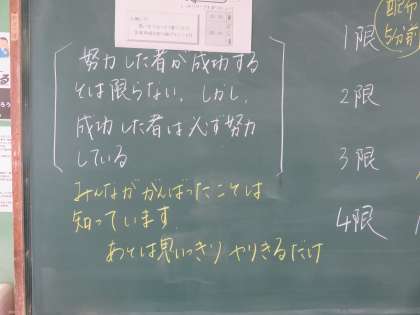 努力した者が成功する
とは限らない。しかし、
成功した者は必ず努力
している
みんながんばったことは
知っています。
あとは思いっきりやりきるだけ
1限
2限
3限
4限
配布
5分前